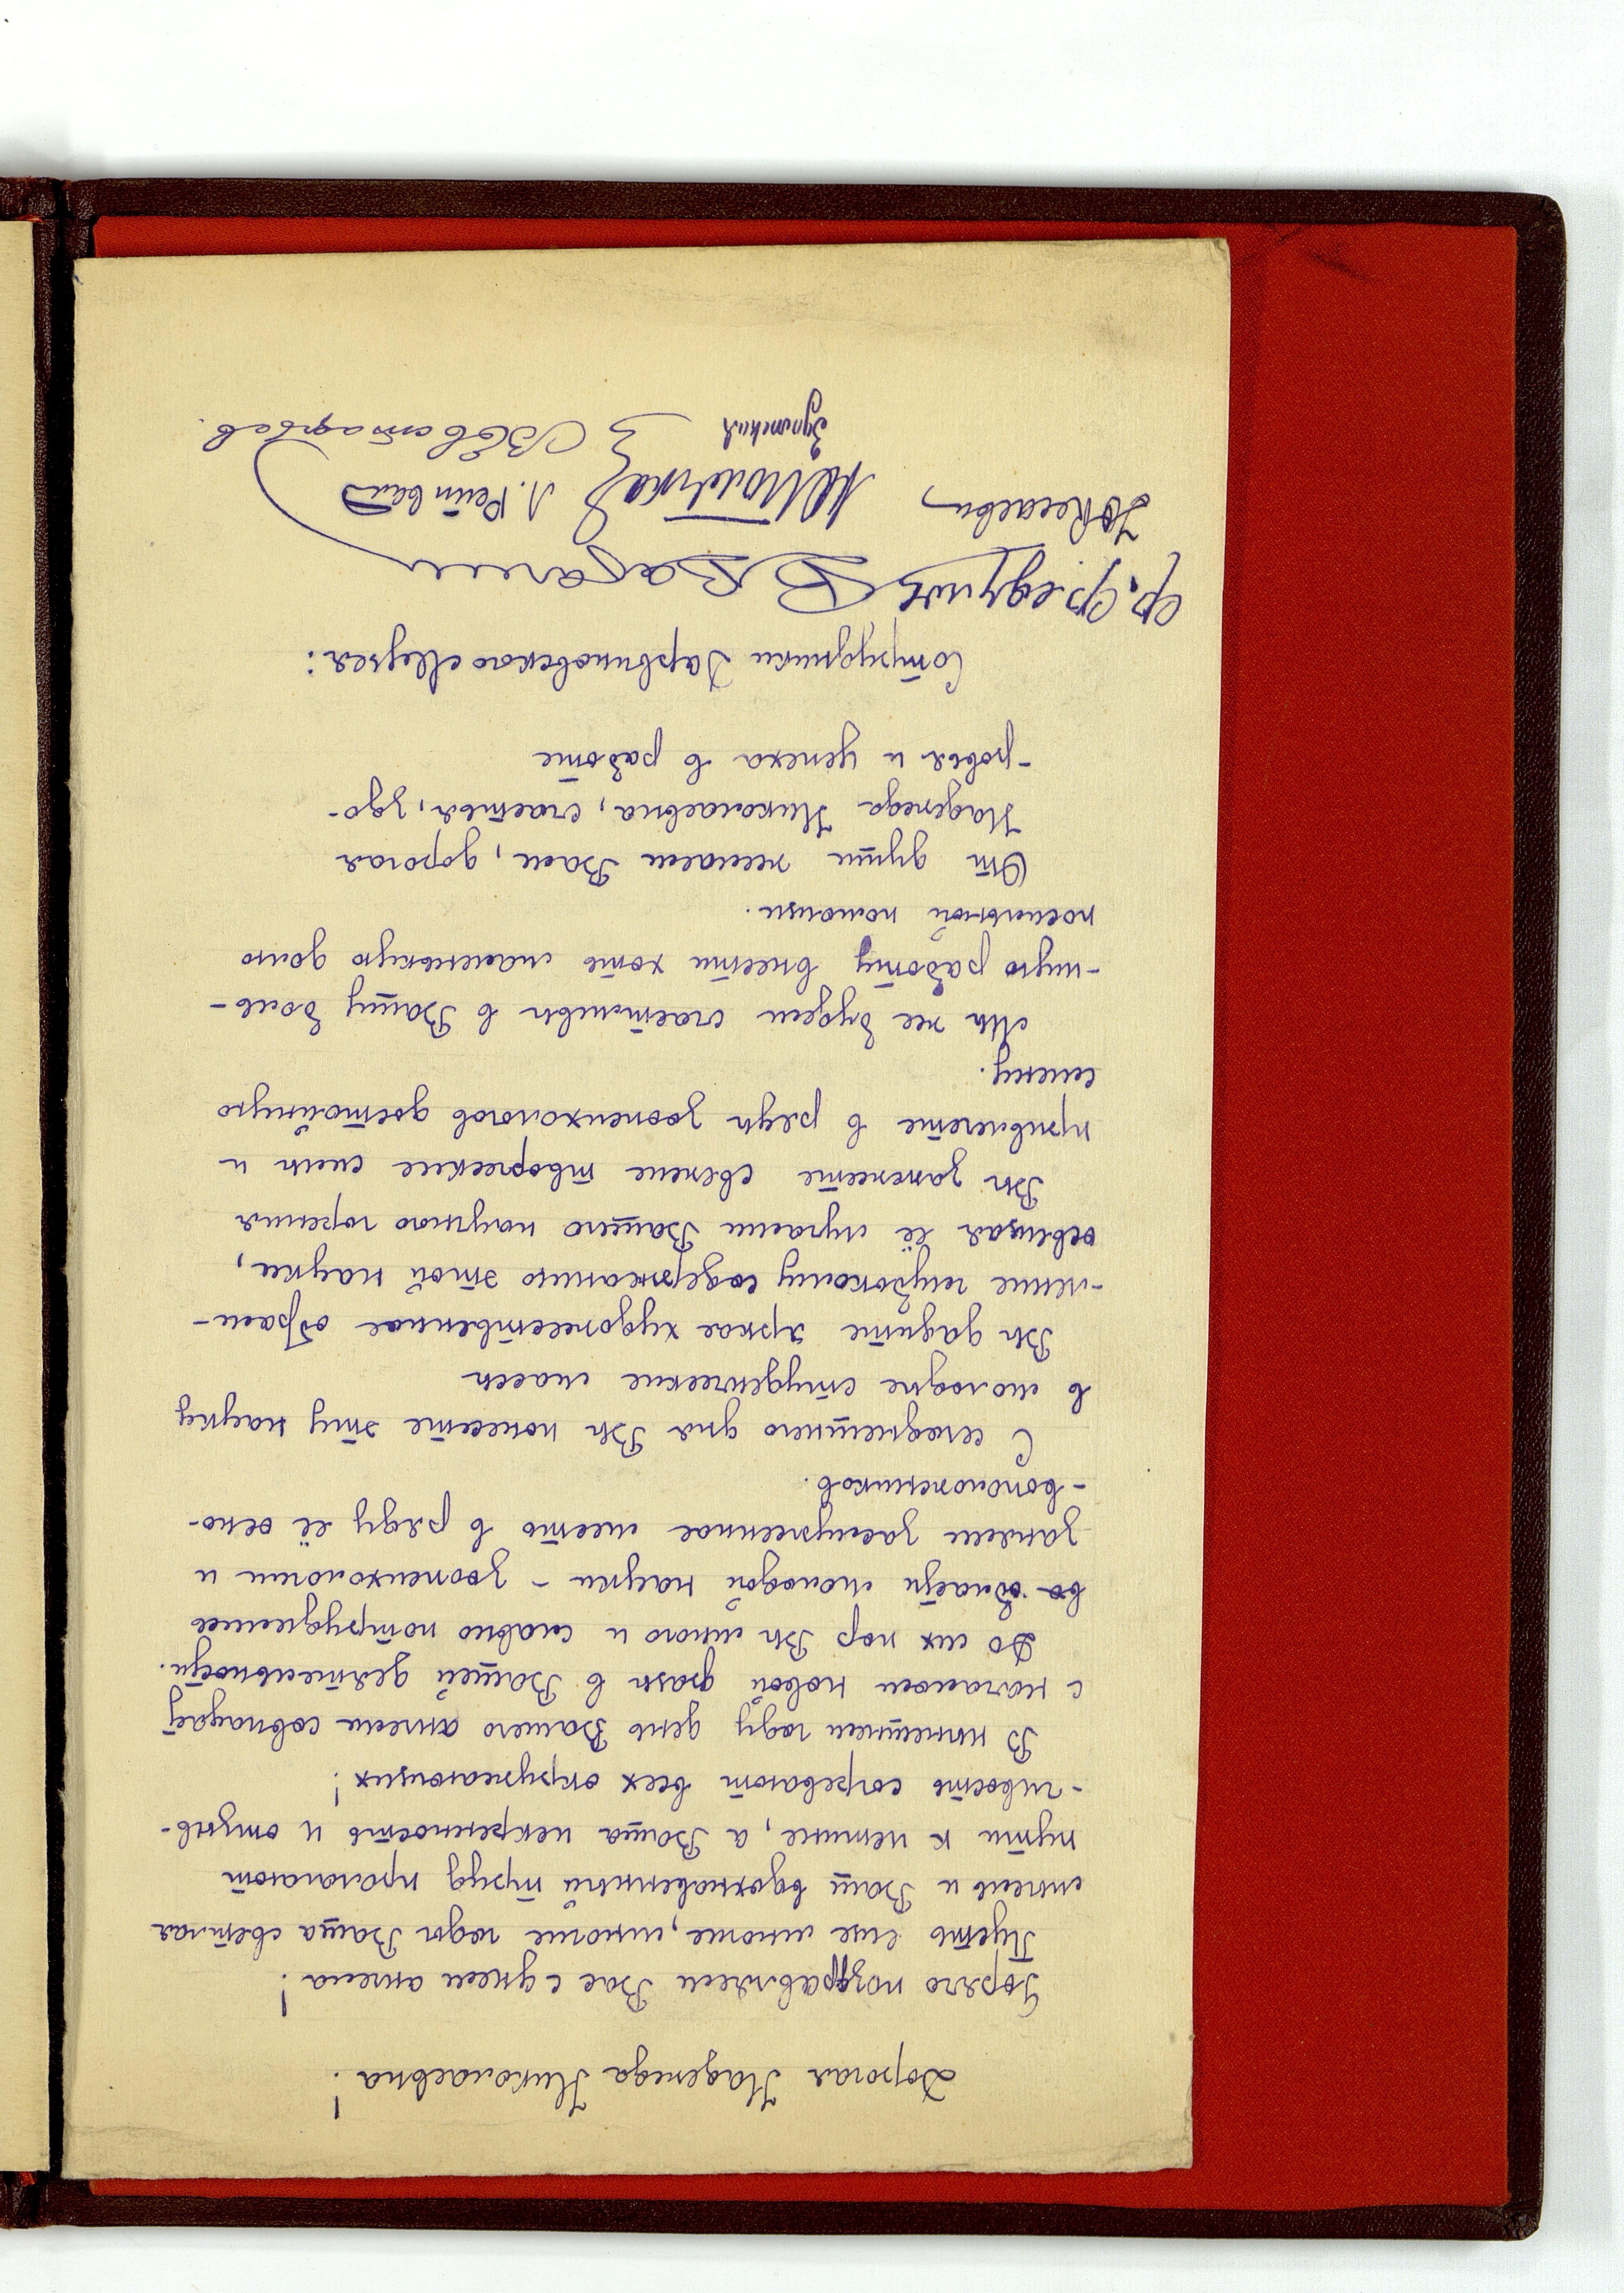 Дорогая Надежда Николаевна!
Горячо поздравляем Вас с днем ангела!
Пусть еще многие, многие годы Ваша светлая
мысль и Ваш вдохновенный труд пролагают
пути к истине, а Ваша искренность и отзыв-
-чивость согревают всех окружающих!
В нынешнем году день Вашего ангела совпадает
с началом новой фазы в Вашей деятельности.
До сих пор Вы много и славно потрудились
в области молодой науки - зоопсихологии и
заняли заслуженное место в ряду её осно-
-воположников.
С сегодняшнего дня Вы понесете эту науку
в молодые студенческие массы
Вы дадите яркое художественное обрам-
-ление глубокому содержанию этой науки,
освещая её лучами Вашего научного горения
Вы зажжете свежие творческие силы и
привлечете в ряды зоопсихологов достойную
смену.
Мы же будем счастливы в Вашу боль-
-шую работу внести хоть маленькую долю
посильной помощи.
От души желаем Вам, дорогая
Надежда Николаевна, счастья, здо-
-ровья и успеха в работе
Сотрудники Дарвиновского Музея:
Ф. Федулов
Л. Рейнвальд
В Евстафьев.